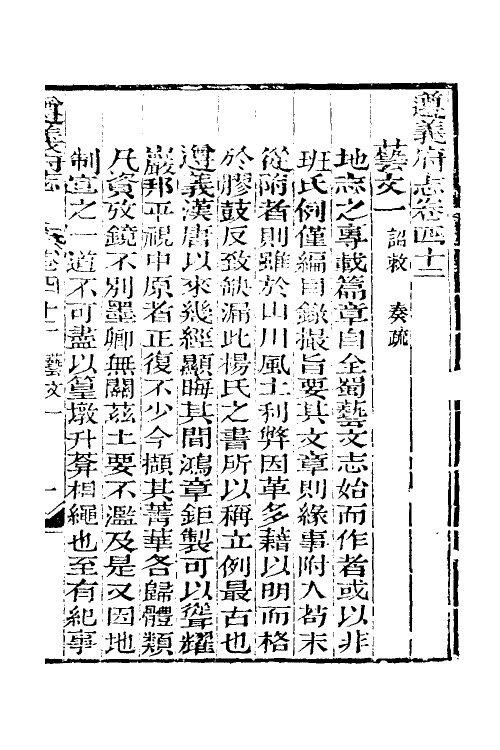 遵義府志卷四十二
藝文一 詔敕 奏疏
地志之專載篇章自全蜀藝文志始而作者或以非
班氏例僅編目錄撮旨要其文章則緣事附人苟未
從附者則雖於山川風土利弊因革多藉以明而格
於膠鼓反致缺漏此楊氏之書所以稱立例最古也
遵義漢唐以來幾經顯晦其間鴻章鉅製可以聳耀
巖邦平視中原者正復不少今擷其菁華各歸體類
凡資攷鏡不別墨卿無關茲土要不濫及是又因地
制宜之一道不可盡以篁墩升葊相繩也至有紀事
遵義府志 卷四十二 藝文一 一